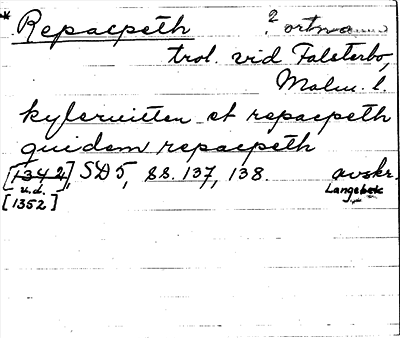 * Repacpeth ? ortnamn
trol. vid Falsterbo,
Malm. l.
kylervitten et repacpeth
quidem repacpeth
[1342], SD 5, ss. 137, 138. avskr.
u.d. Langebek
[1352]